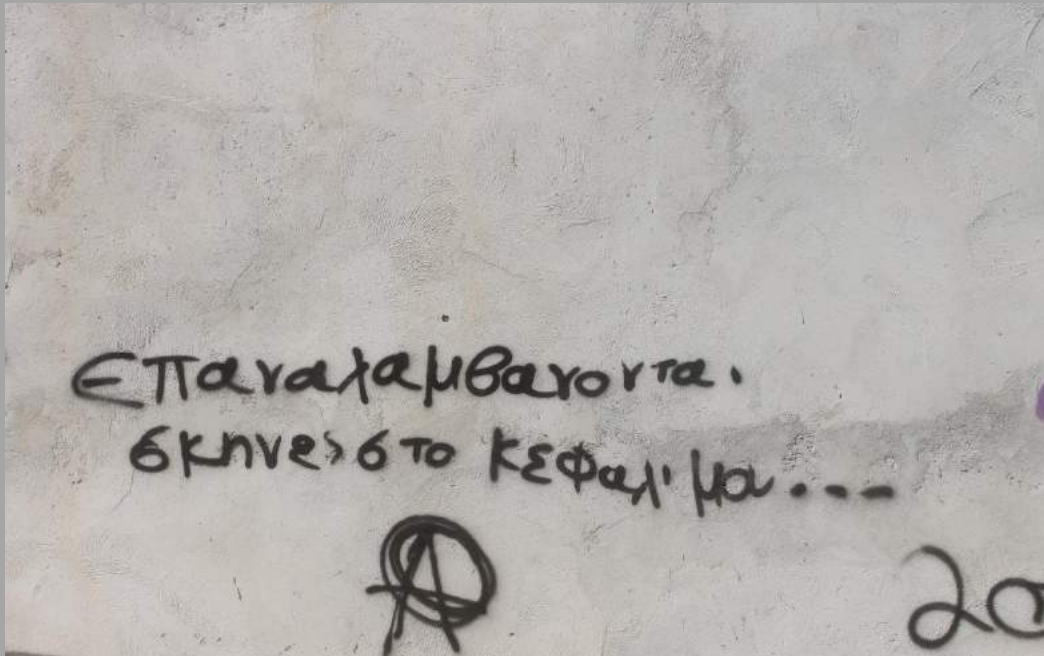 Επαναλαμβανονται
σκηνες στο κεφαλι μου...
Α
20